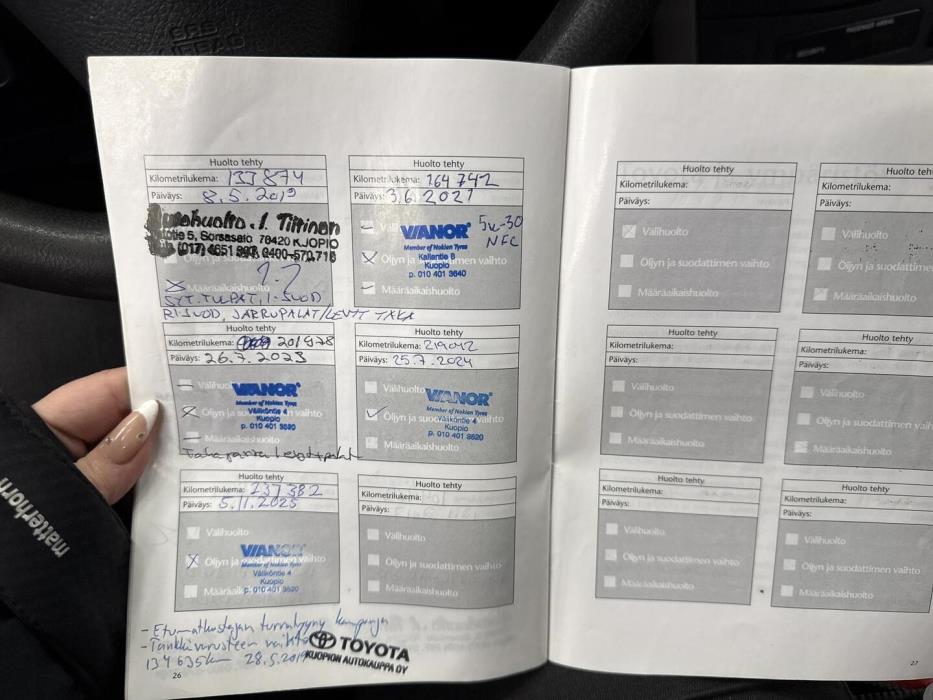 Huolto tehty
Kilometrilukema: 133 874
Päiväys: 8.5.2019
Autohuolto J. Tiittinen
5, Sorsasalo 70420 KUOPIO
(017) 0400-570 716
Määräaikaishuolto
SYT.TULPAT, I-SUOD
RI.SUOD, JARRUPALAT/LEVYT TAKA
Huolto tehty
Kilometrilukema: 164 742
Päiväys: 3.6.2021
5W-30
NFC
VIANOR
Member of Nokian Tyres
Kallantie 8
Kuopio
p. 010 401 3640
Öljyn ja suodattimen vaihto
Määräaikaishuolto
Huolto tehty
Kilometrilukema: 201978
Päiväys: 26.7.2023
Välihuolto
VIANOR
Member of Nokian Tyres
Väliköntie 4
Kuopio
p. 010 401 3620
Öljyn ja suodattimen vaihto
Määräaikaishuolto
Huolto tehty
Kilometrilukema: 219042
Päiväys: 25.7.2024
Välihuolto
VIANOR
Member of Nokian Tyres
Väliköntie 4
Kuopio
p. 010 401 3620
Öljyn ja suodattimen vaihto
Määräaikaishuolto
Huolto tehty
Kilometrilukema: 237382
Päiväys: 5.11.2025
Välihuolto
VIANOR
Member of Nokian Tyres
Väliköntie 4
Kuopio
p. 010 401 3620
Öljyn ja suodattimen vaihto
Määräaikaishuolto
Huolto tehty
Kilometrilukema:
Päiväys:
Välihuolto
Öljyn ja suodattimen vaihto
Määräaikaishuolto
- Etumatkustajan turvatyyny kampanja
- Tankkivarusteen vaihto
134 635km 28.5.2019
TOYOTA
KUOPION AUTOKAUPPA OY
26
Huolto tehty
Kilometrilukema:
Päiväys:
Välihuolto
Öljyn ja suodattimen vaihto
Määräaikaishuolto
Huolto teh
Kilometrilukema:
Päiväys:
Välihuolto
Öljyn ja suodattimen vaih
Määräaikaishuolto
Huolto tehty
Kilometrilukema:
Päiväys:
Välihuolto
Öljyn ja suodattimen vaihto
Määräaikaishuolto
Huolto tehty
Kilometrilukema:
Päiväys:
Välihuolto
Öljyn ja suodattimen vaih
Määräaikaishuolto
Huolto tehty
Kilometrilukema:
Päiväys:
Välihuolto
Öljyn ja suodattimen vaihto
Määräaikaishuolto
Huolto tehty
Kilometrilukema:
Päiväys:
Välihuolto
Öljyn ja suodattimen vaihto
Määräaikaishuolto
27
matterhorn
SRS
AIRBAG